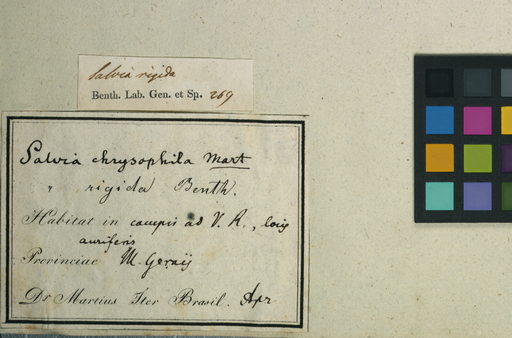 Salvia rigida
Benth. Lab. Gen. et Sp. 269
Salvia chrysophila Mart
" rigida Benth.
Habitat in campis ad V. R., locis
auriferis
Provinciae M. Geraës
Dr Martius Iter Brasil. Apr